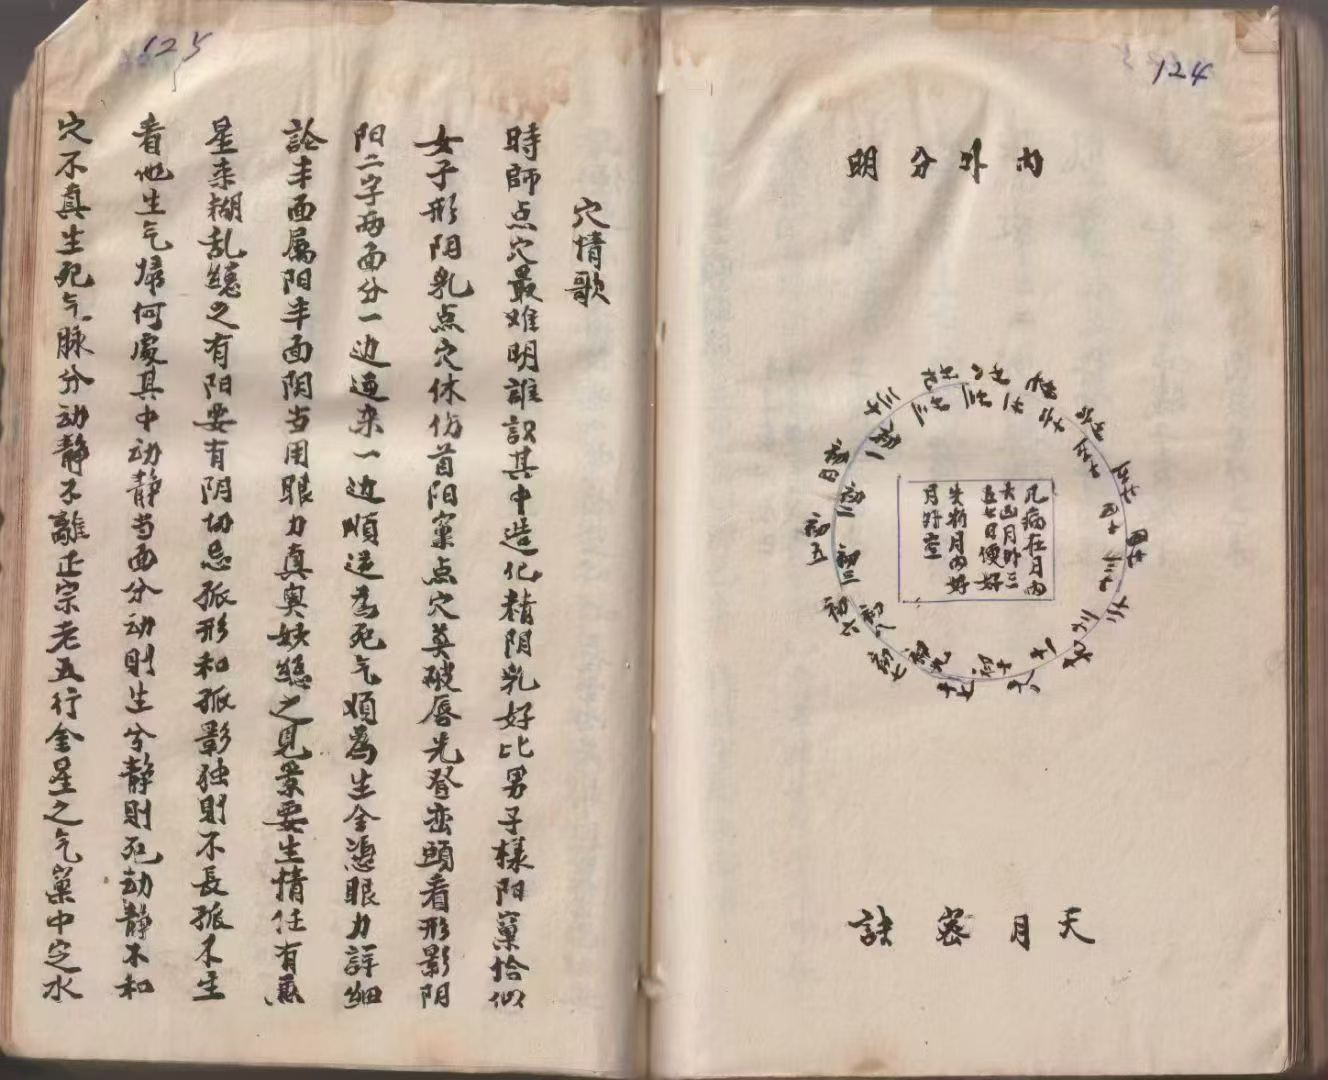 124
内外分明
凡病在月內
去出月外三
五七日便好
失於月內好
月外空
三十
初一
初二
初三
初五
初六
初七
初八
初九
初十
十一
十七
天月密訣
125
穴情歌
時師点穴最难明誰識其中造化精阴乳好比男子樣阳窠恰似
女子形阴乳点穴休伤首阳窠点穴莫破唇先登峦頭看形影阴
阳二字两面分一边逆来一边順逆為死气順為生全憑眼力詳細
論半面属阳半面阴当用眼力真奥妙總之見景要生情任有
星来糊乱總之有阳要有阴切忌孤形和孤影独則不長孤不生
看他生气歸何處其中动静当面分动則生兮静則死动静不和
穴不真生死气脉分动静不離正宗老五行金星之气窠中定水